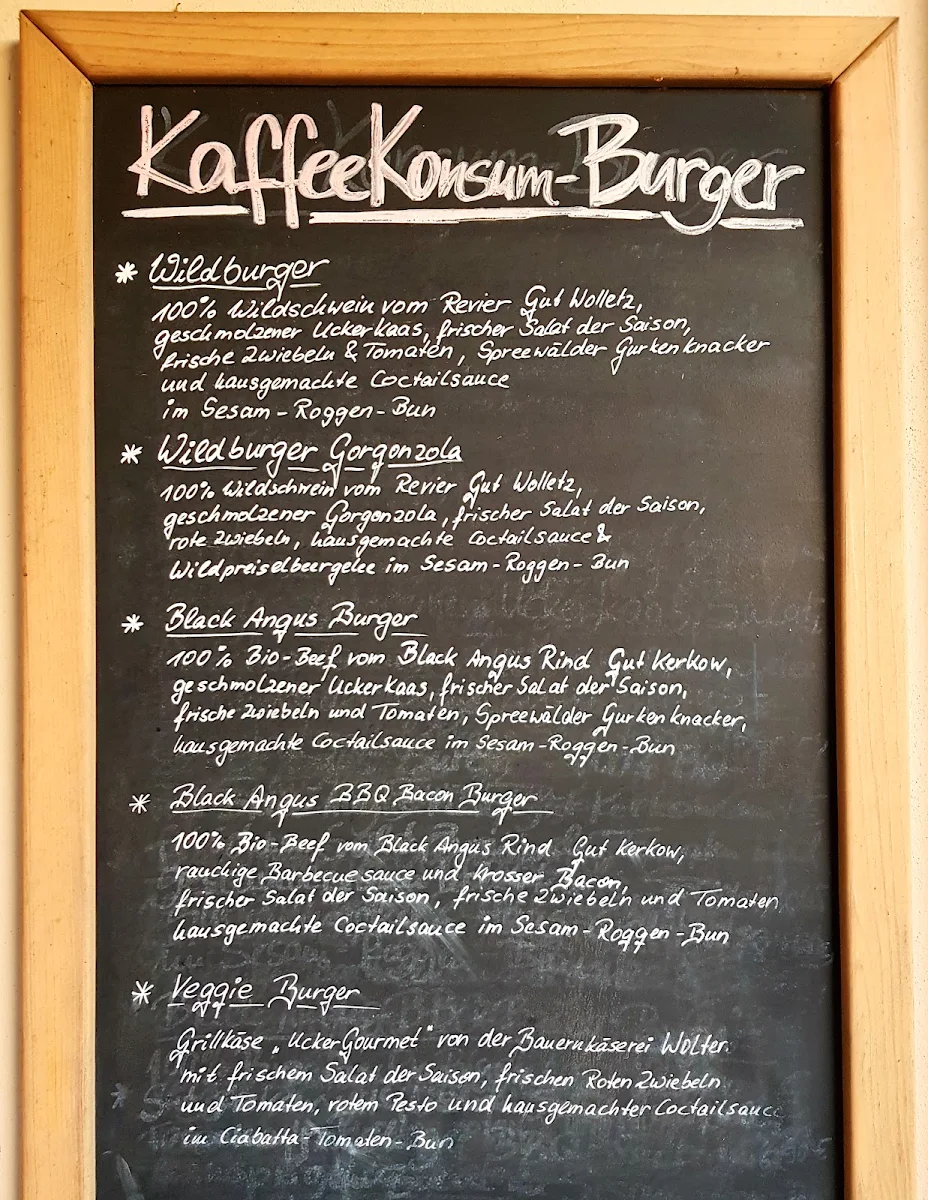 KaffeeKonsum-Burger
* Wildburger
100% Wildschwein vom Revier Gut Wolletz,
geschmolzener UckerKaas, frischer Salat der Saison,
frische Zwiebeln & Tomaten, Spreewälder Gurkenknacker
und hausgemachte Coctailsauce
im Sesam-Roggen-Bun
* Wildburger Gorgonzola
100% Wildschwein vom Revier Gut Wolletz,
geschmolzener Gorgonzola, frischer Salat der Saison,
rote Zwiebeln, hausgemachte Coctailsauce &
Wildpreiselbeergelee im Sesam-Roggen-Bun
* Black Angus Burger
100% Bio-Beef vom Black Angus Rind Gut Kerkow,
geschmolzener UckerKaas, frischer Salat der Saison,
frische Zwiebeln und Tomaten, Spreewälder Gurkenknacker,
hausgemachte Coctailsauce im Sesam-Roggen-Bun
* Black Angus BBQ Bacon Burger
100% Bio-Beef vom Black Angus Rind Gut Kerkow,
rauchige Barbecuesauce und krosser Bacon,
frischer Salat der Saison, frische Zwiebeln und Tomaten,
hausgemachte Coctailsauce im Sesam-Roggen-Bun
* Veggie Burger
Grillkäse „UckerGourmet" von der Bauernkäserei Wolter.
mit frischem Salat der Saison, frischen Roten Zwiebeln
und Tomaten, rotem Pesto und hausgemachter Coctailsauce
im Ciabatta-Tomaten-Bun